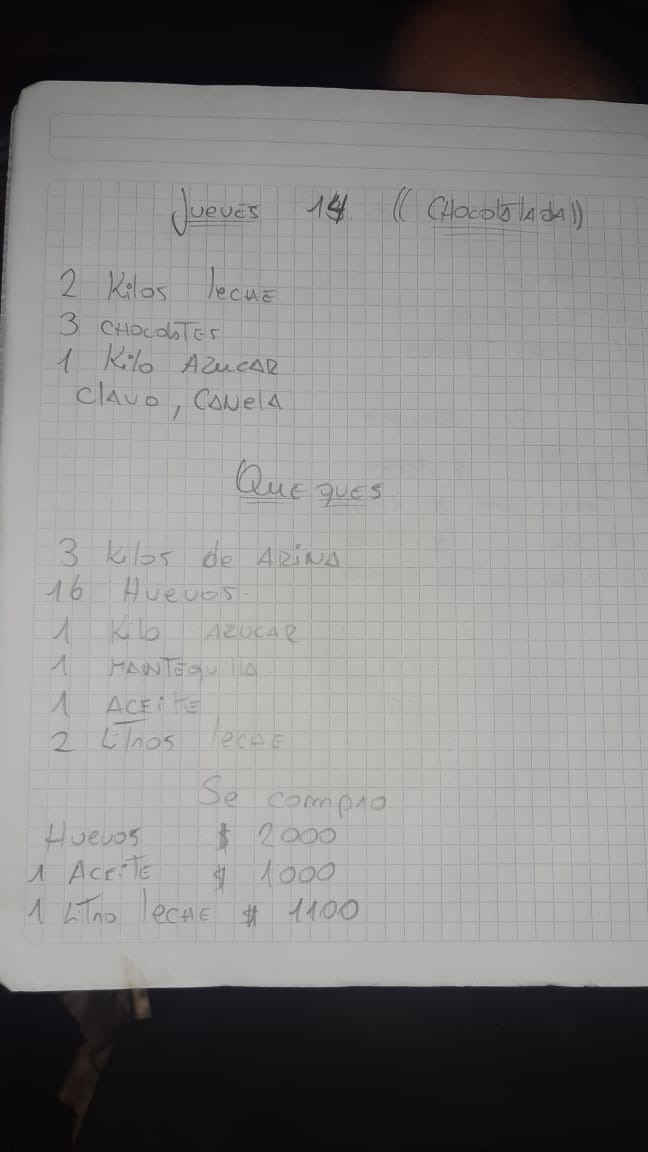 Jueves 14 (( CHocolatada))
2 Kilos lecHe
3 CHocolates
1 Kilo Azucar
Clavo, Canela
Queques
3 Kilos de Arina
16 Huevos.
1 Kilo Azucar
1 Mantequilla
1 Aceite
2 Litros lecHe
Se compro
Huevos $ 2000
1 Aceite $ 1000
1 Litro lecHe $ 1100